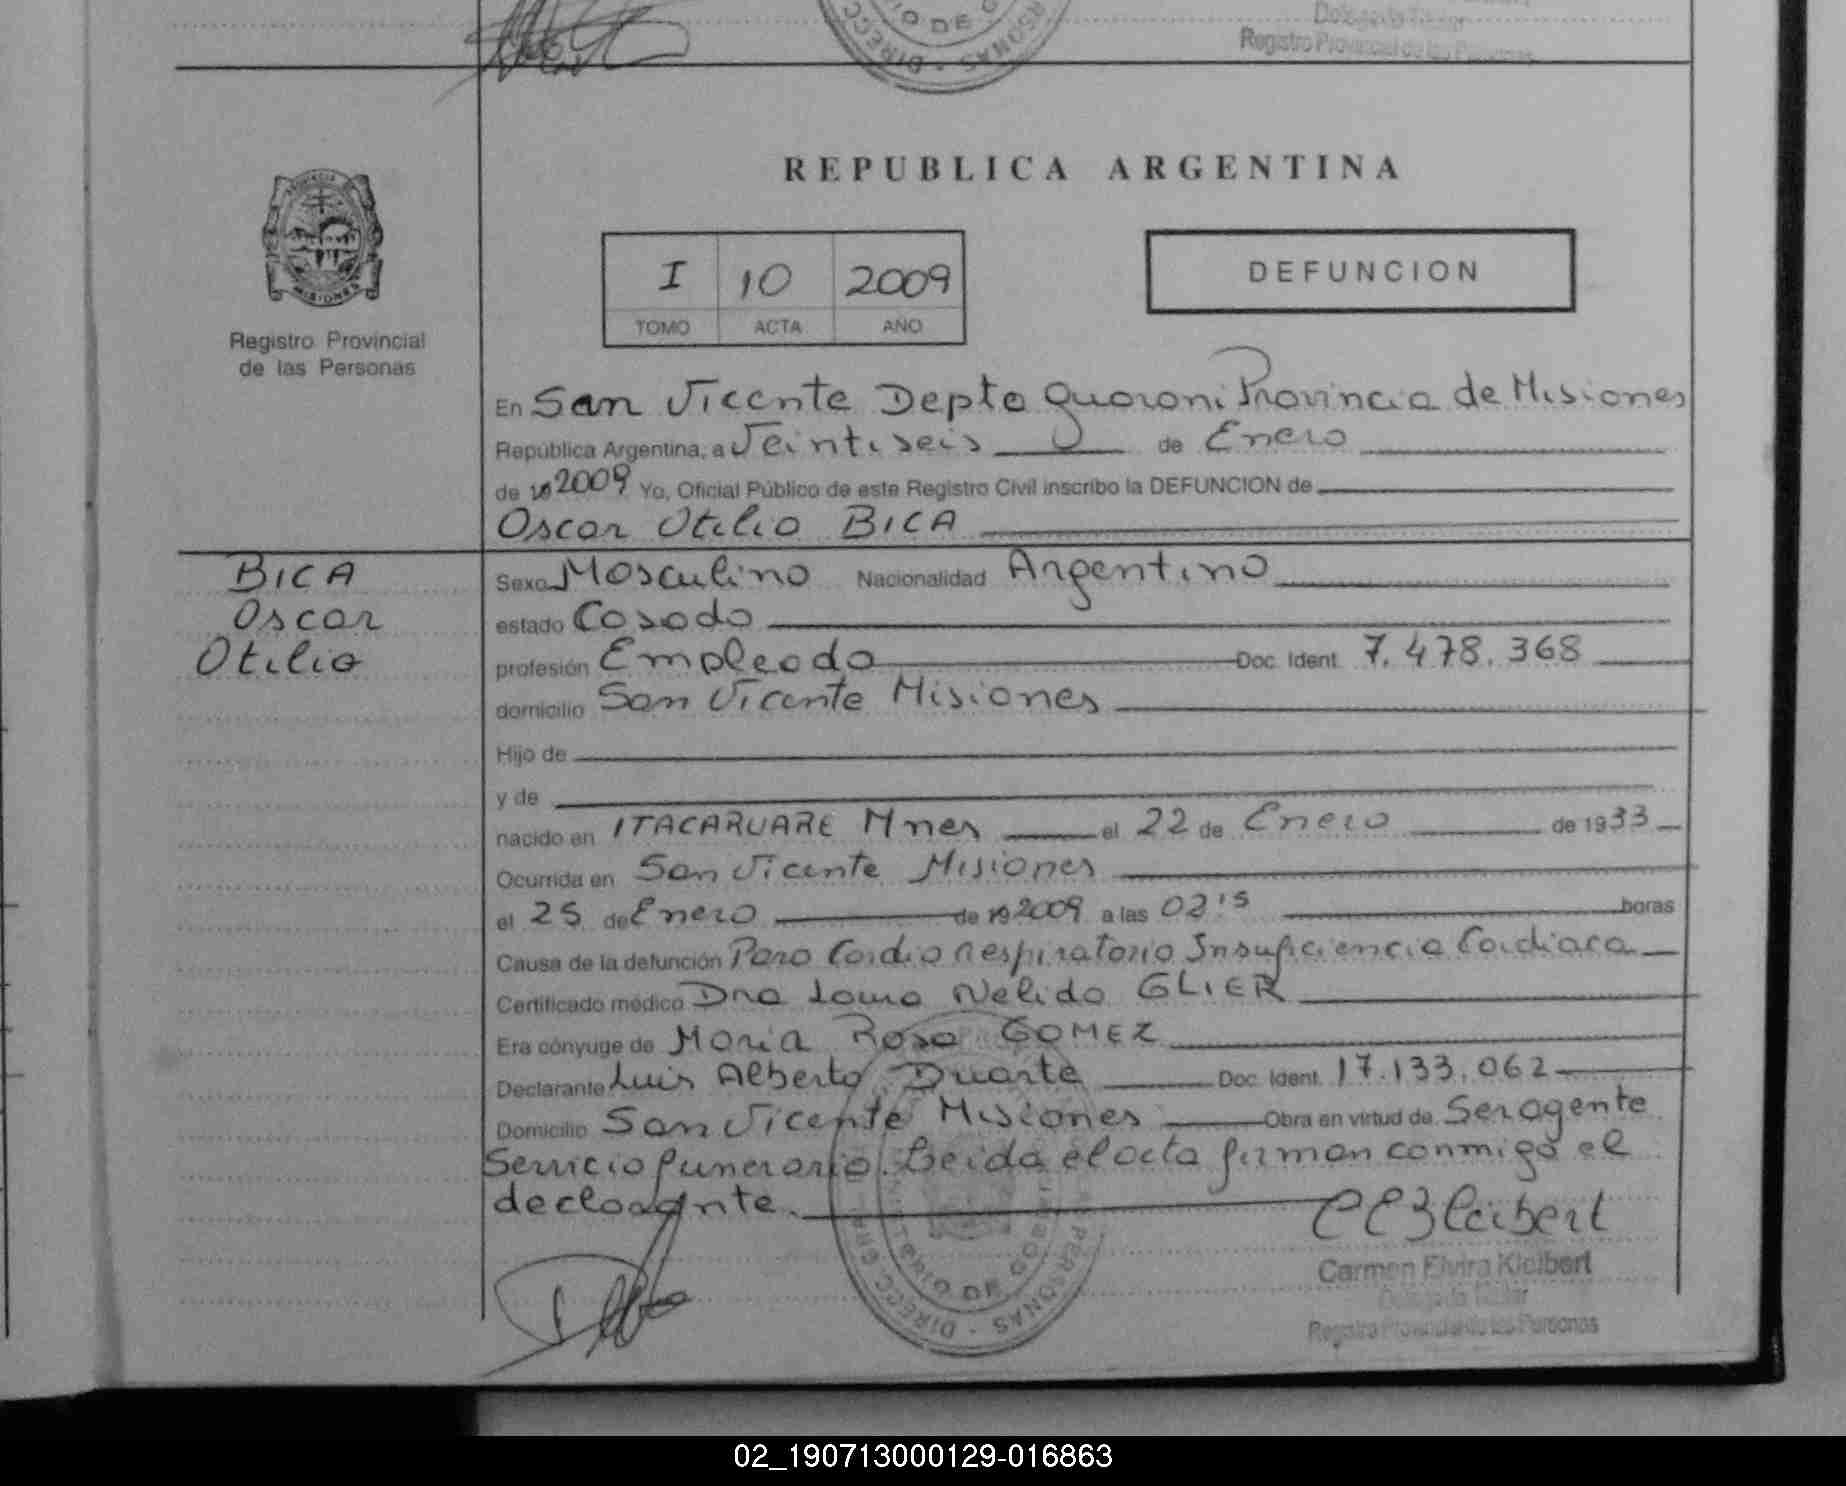 Registro Provincial de las Personas
REPUBLICA ARGENTINA
I 10 2009
TOMO ACTA AÑO
DEFUNCION
MISIONES
Registro Provincial
de las Personas
En San Vicente Depto Guarani Provincia de Misiones
República Argentina, a Veintiseis de Enero
de 192009 Yo, Oficial Público de este Registro Civil inscribo la DEFUNCION de
Oscar Otilio BICA
BICA
Oscar
Otilio
Sexo Masculino Nacionalidad Argentino
estado Casado
profesión Empleado Doc. Ident. 7.478.368
domicilio San Vicente Misiones
Hijo de
y de
nacido en ITACARUARE Mnes el 22 de Enero de 1933
Ocurrida en San Vicente Misiones
el 25 de Enero de 192009 a las 02'5 horas
Causa de la defunción Paro Cardio Respiratorio Insuficiencia Cardiaca
Certificado médico Dra Laura Nelida GLIER
Era cónyuge de Maria Rosa GOMEZ
Declarante Luis Alberto Duarte Doc. Ident. 17.133.062
Domicilio San Vicente Misiones Obra en virtud de Ser agente
Servicio funerario. Leida el acta firman conmigo el
declarante.
Carmen Elvira Kleibert
Delegada Titular
Registro Provincial de las Personas
02_190713000129-016863